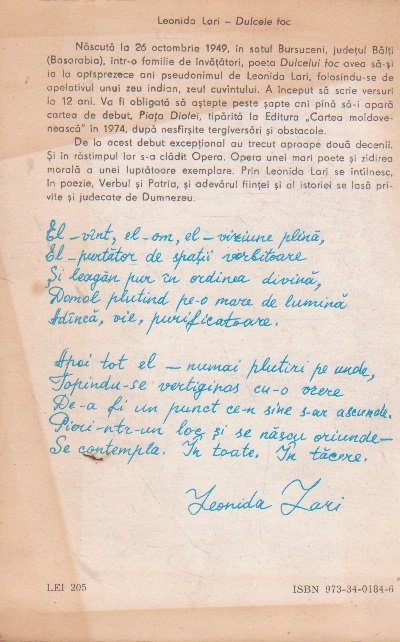 Leonida Lari – Dulcele foc
Născută la 26 octombrie 1949, în satul Bursuceni, județul Bălți
(Basarabia), într-o familie de învățători, poeta Dulcelui foc avea să-și
ia la aptsprezece ani pseudonimul de Leonida Lari, folosindu-se de
apelativul unui zeu indian, zeul cuvîntului. A început să scrie versuri
la 12 ani. Va fi obligată să aștepte peste șapte ani pînă să-i apară
cartea de debut, Piața Diolei, tipărită la Editura „Cartea moldove-
nească” în 1974, după nesfîrșite tergiversări și obstacole.
De la acest debut excepțional au trecut aproape două decenii.
Și în răstimpul lor s-a clădit Opera. Opera unei mari poete și zidirea
morală a unei luptătoare exemplare. Prin Leonida Lari se întîlnesc,
în poezie, Verbul și Patria, și adevărul ființei și al istoriei se lasă pri-
vite și judecate de Dumnezeu.
El – vînt, el – om, el – viziune plină,
El – purtător de spații vorbitoare
Și leagăn pur în ordinea divină,
Domol plutind pe-o mare de lumină
Adîncă, vie, purificatoare.
Apoi tot el – numai plutiri pe unde,
Topindu-se vertiginos cu-o vrere
De-a fi un punct ce-n sine s-ar ascunde.
Pieri-ntr-un loc și se născu oriunde –
Se contempla. În toate. În tăcere.
Leonida Lari
LEI 205
ISBN 973-34-0184-6